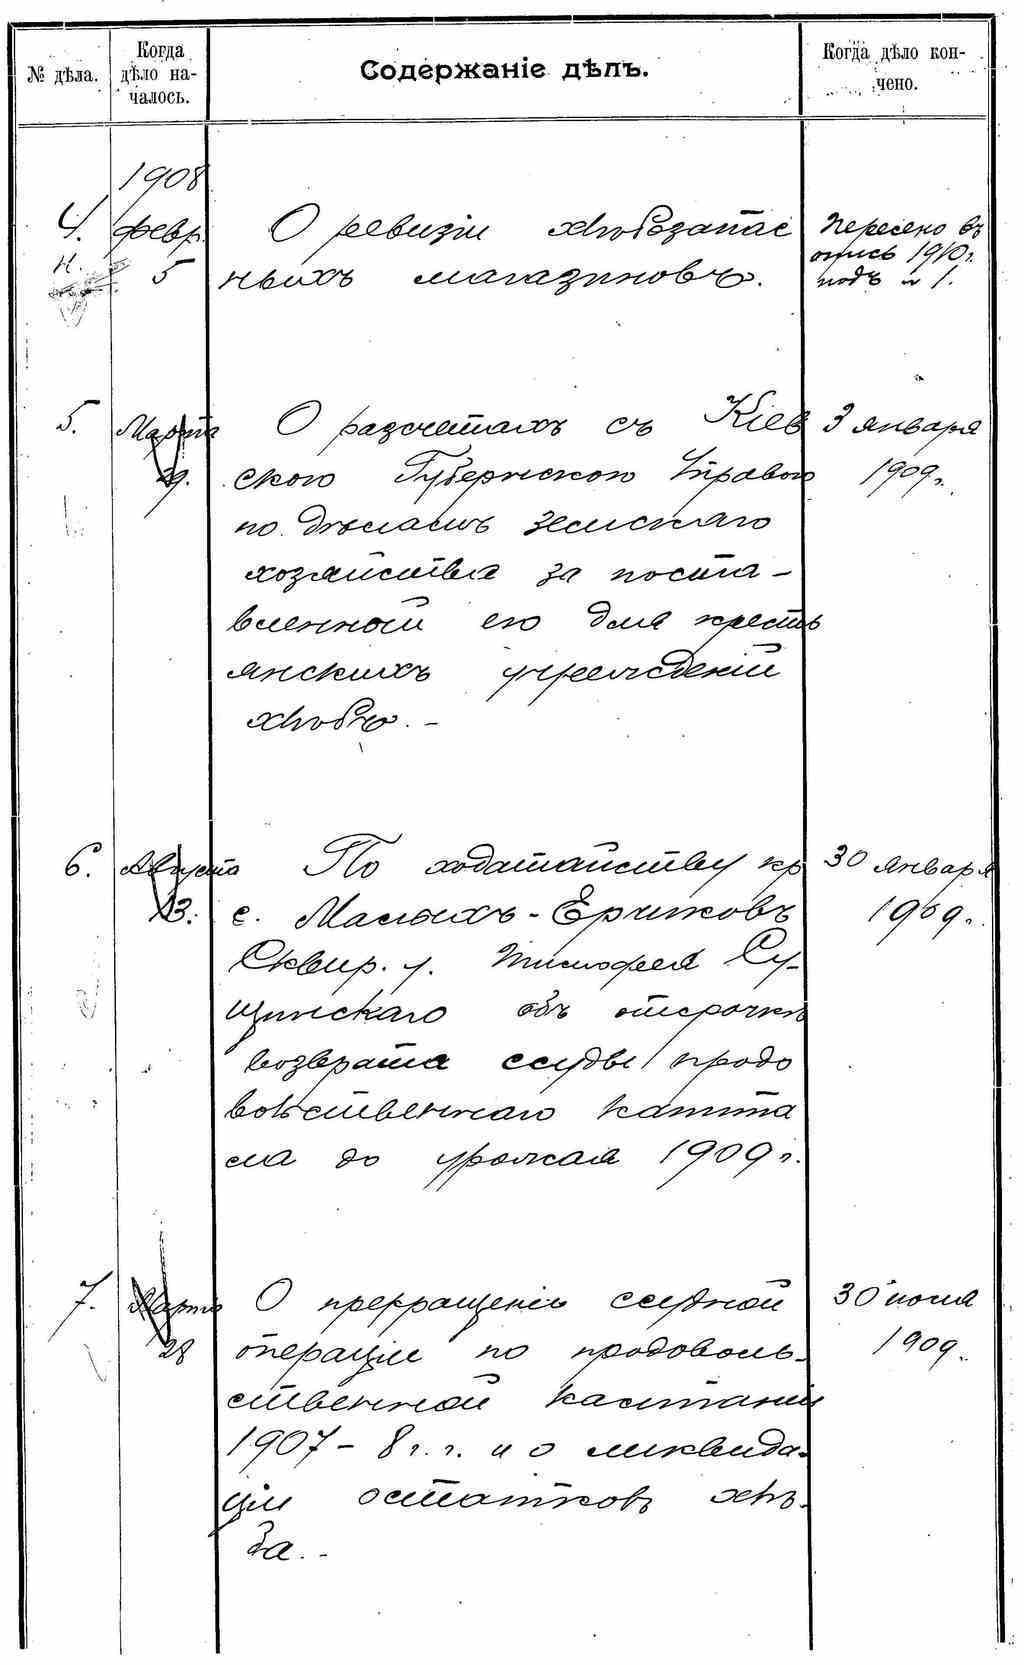 № дѣла.
Когда
дѣло на-
чалось.
Содержаніе дѣлъ.
Когда дѣло кон-
чено.
1908
4.
Февр.
5
О ревизіи хлѣбозапас
ныхъ магазиновъ.
Пересено въ
опись 1910г.
подъ № 1.
5.
Марта
29.
О разсчетахъ съ Кіев
скою Губернскою Управою
по дѣламъ земскаго
хозяйства за поста-
вленный ею для кресть
янскихъ учрежденій
хлѣбъ. -
3 января
1909г.
6.
Августа
13.
По ходатайству кр
с. Малыхъ-Ерчиковъ
Сквир. у. Тимофея Су-
щинскаго объ отсрочкѣ
возврата ссуды продо
вольственнаго капита
ла до урожая 1909 г.
30 января
1909г.
7.
Марта
28
О прекращеніи ссудной
операціи по продоволь-
ственной кампаніи
1907 - 8 г. г. и о ликвида-
ціи остатковъ хлѣ-
ба. -
30 іюля
1909г.